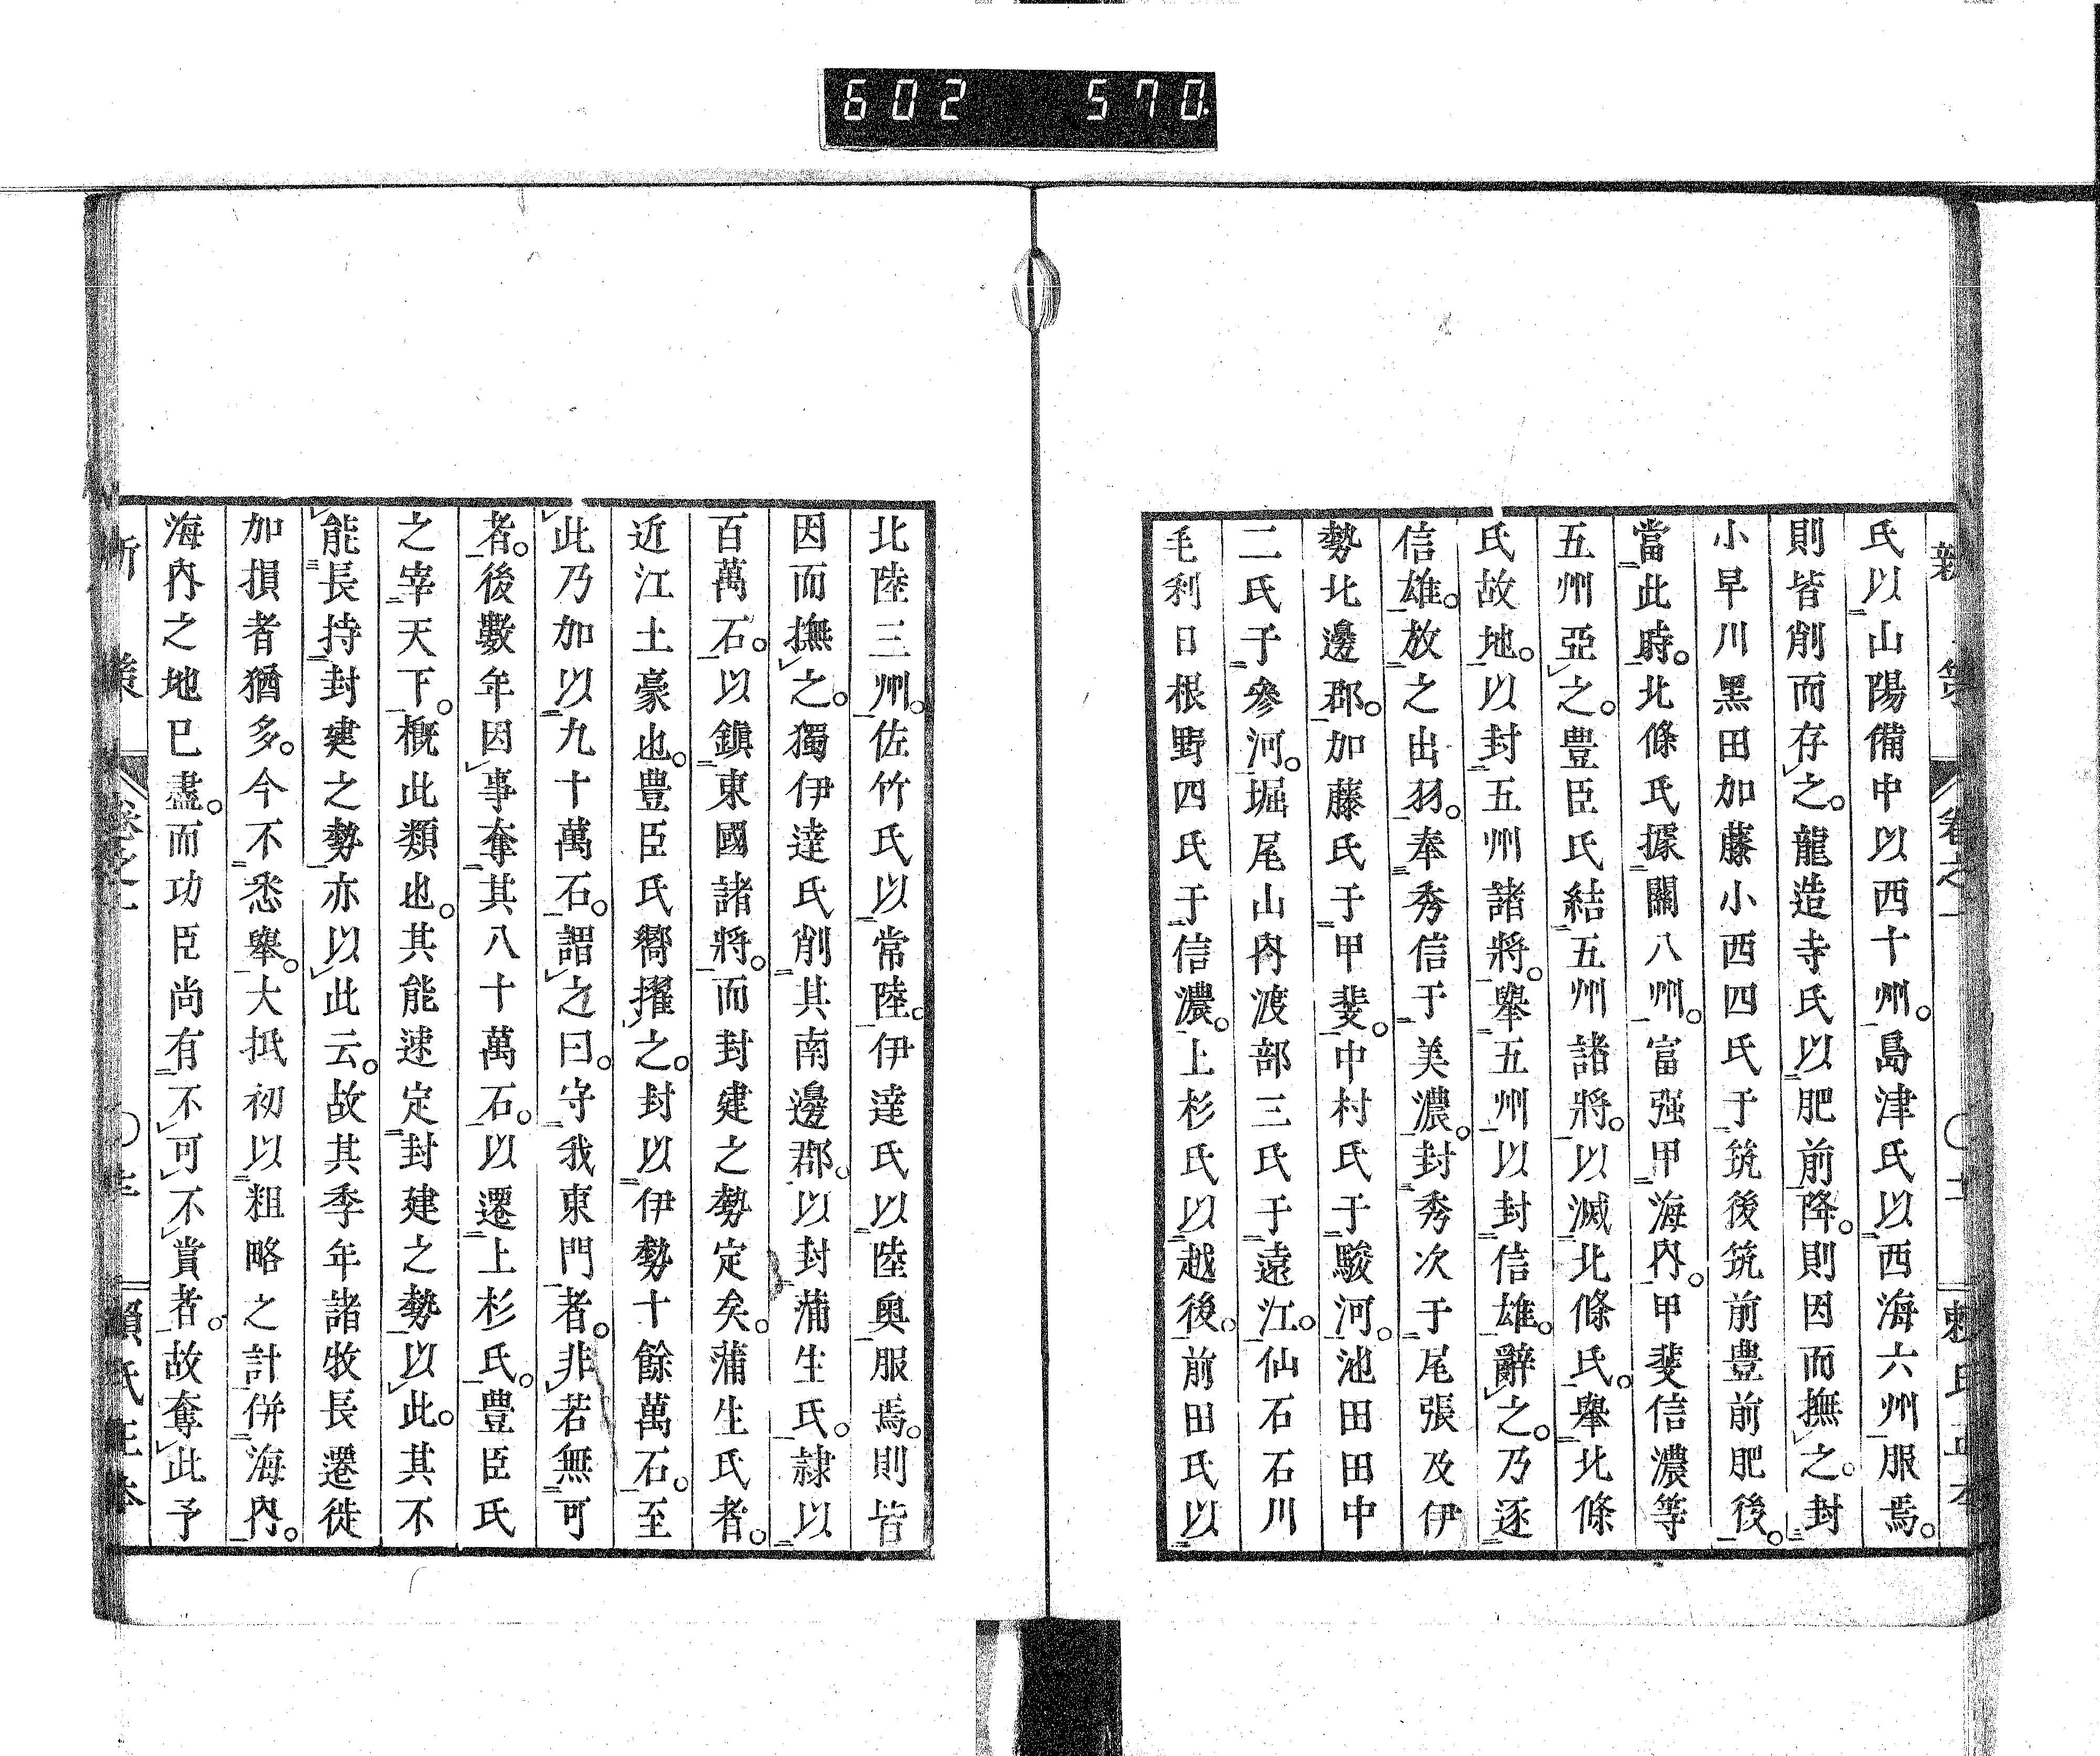 602 570
氏以山陽備中以西十州。島津氏以西海六州服焉。
則皆削而存之。龍造寺氏以肥前降。則因而撫之。封
小早川黑田加藤小西四氏于筑後筑前豊前肥後。
當此時。北條氏據關八州。富强甲海內。甲斐信濃等
五州亞之。豊臣氏結五州諸將。以滅北條氏。舉北條
氏故地。以封五州諸將。舉五州以封信雄。辭之。乃逐
信雄。放之出羽。奉秀信于美濃。封秀次于尾張及伊
勢北邊郡。加藤氏于甲斐。中村氏于駿河。池田田中
二氏于參河。堀尾山內渡部三氏于遠江。仙石石川
毛利日根野四氏于信濃。上杉氏以越後。前田氏以
北陸三州。佐竹氏以常陸。伊達氏以陸奧服焉。則皆
因而撫之。獨伊達氏削其南邊郡。以封蒲生氏。隷以
百萬石。以鎭東國諸將。而封建之勢定矣。蒲生氏者。
近江土豪也。豊臣氏嚮擢之。封以伊勢十餘萬石。至
此乃加以九十萬石。謂之曰。守我東門者。非若無可
者。後數年因事奪其八十萬石。以遷上杉氏。豊臣氏
之宰天下。概此類也。其能速定封建之勢以此。其不
能長持封建之勢亦以此云。故其季年諸牧長遷徙
加損者猶多。今不悉舉。大抵初以粗略之計併海內。
海內之地已盡。而功臣尚有不可不賞者。故奪此予